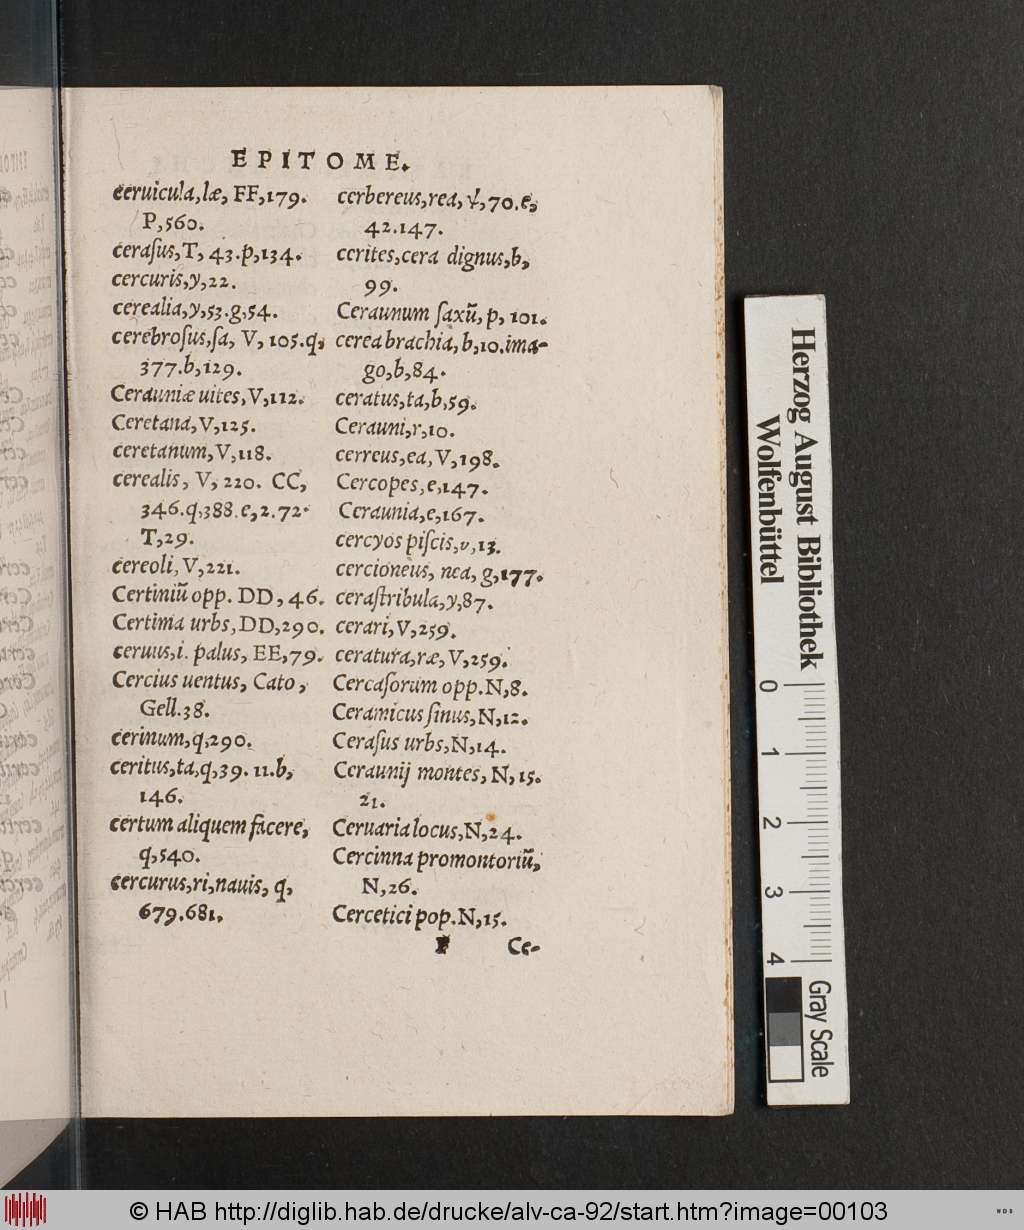 EPITOME.
ceruicula,læ, FF,179.
P,560.
ceraſus,T, 43.p,134.
cercuris,y,22.
cerealia,y,53.g,54.
cerebroſus,ſa, V, 105.q,
377.b,129.
Cerauniæ uites,V,112.
Ceretana,V,125.
ceretanum,V,118.
cerealis, V, 220. CC,
346.q,388.e,2.72.
T,29.
cereoli,V,221.
Certiniũ opp. DD, 46.
Certima urbs,DD,290.
ceruus,i. palus, EE,79.
Cercius uentus, Cato,
Gell.38.
cerinum,q,290.
ceritus,ta,q,39. 11.b,
146.
certum aliquem facere,
q,540.
cercurus,ri,nauis, q,
679.681,
cerbereus,rea,ψ,70.e,
42.147.
cerites,cera dignus,b,
99.
Ceraunum ſaxũ, p, 101.
cerea brachia,b,10.ima-
go,b,84.
ceratus,ta,b,59.
Cerauni,r,10.
cerreus,ea,V,198.
Cercopes,e,147.
Ceraunia,e,167.
cercyos piſcis,υ,13.
cercioneus, nea, g,177.
ceraſtribula,y,87.
cerari,V,259.
ceratura,ræ,V,259.
Cercaſorum opp.N,8.
Ceramicus ſinus,N,12.
Ceraſus urbs,N,14.
Ceraunij montes, N,15.
21.
Ceruaria locus,N,24.
Cercinna promontoriũ,
N,26.
Cercetici pop.N,15.
F Ce-
Herzog August Bibliothek
Wolfenbüttel
0 1 2 3 4
Gray Scale
© HAB http://diglib.hab.de/drucke/alv-ca-92/start.htm?image=00103